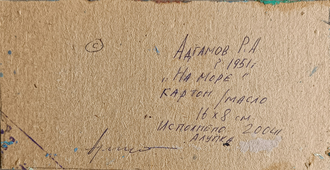 ©
Адгамов Р.А
р. 1951г
"На море"
картон/масло
16 х 8 см
Исполнено 200
Алупка